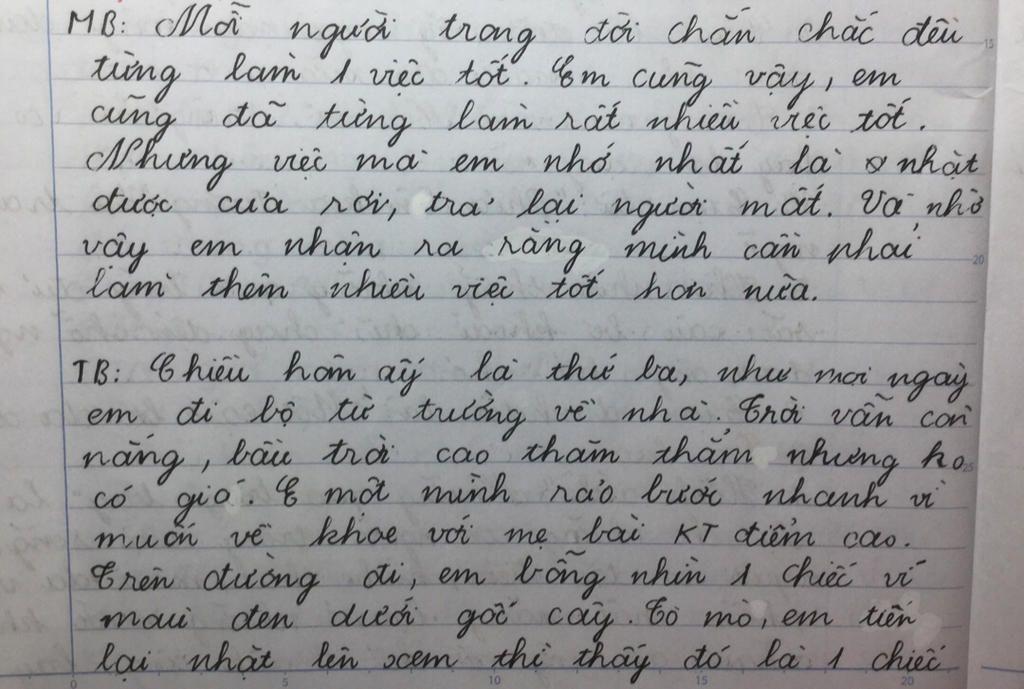 MB: Mỗi người trong đời chắn chắc đều
từng làm 1 việc tốt. Em cũng vậy, em
cũng đã từng làm rất nhiều việc tốt.
Nhưng việc mà em nhớ nhất là nhặt
được của rơi, trả lại người mất. Và nhờ
vậy em nhận ra rằng mình cần phải
làm thêm nhiều việc tốt hơn nữa.
TB: Chiều hôm ấy là thứ ba, như mọi ngày
em đi bộ từ trường về nhà. Trời vẫn còn
nắng, bầu trời cao thăm thẳm nhưng ko
có gió. E một mình rảo bước nhanh vì
muốn về khoe với mẹ bài KT điểm cao.
Trên đường đi, em bỗng nhìn 1 chiếc ví
màu đen dưới gốc cây. Tò mò, em tiến
lại nhặt lên xem thì thấy đó là 1 chiếc
15
20
25
0 5 10 15 20